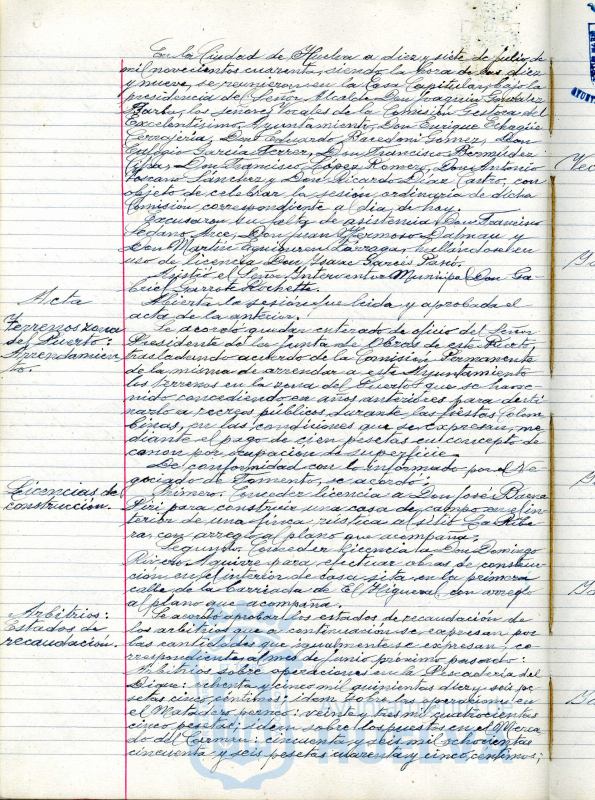 En la Ciudad de Huelva a diez y siete de julio de
mil novecientos cuarenta, siendo la hora de las diez
y nueve, se reunieron en la Casa Capitular, bajo la
presidencia del Señor Alcalde Don Joaquín González
Barba, los señores Vocales de la Comisión Gestora del
Excelentísimo Ayuntamiento, Don Enrique
Don Eduardo Gómez, Don
Eulogio García Don Francisco Bermúdez
Don Francisco López Romero, Don Antonio
Toscano Sánchez y Don Ricardo Díaz Castro, con
objeto de celebrar la sesión ordinaria de dicha
Comisión correspondiente al día de hoy.
Excusaron su falta de asistencia Don Francisco
Lozano Don Juan Hermoso y
Don Martín hallándose en
uso de licencia Don Isaac Garcés
Asistió el Señor Interventor Municipal Don Ga-
briel Garrote
Acta
Abierta la sesión fué leida y aprobada el
acta de la anterior.
Terrenos zona
del Puerto:
Arrendamien-
to.
Se acordó quedar enterado de oficio del Señor
Presidente de la Junta de Obras de este Puerto,
trasladando acuerdo de la Comisión Permanente
de la misma de arrendar a este Ayuntamiento
los terrenos en la zona del Puerto que se han ve-
nido concediendo en años anteriores para desti-
narlo a recreos públicos durante las fiestas Colom-
binas, en las condiciones que se expresan, me-
diante el pago de cien pesetas en concepto de
canon por ocupación de superficie.
Licencias de
construcción.
De conformidad con lo informado por el Ne-
gociado de Fomento, se acordó:
Primero. Conceder licencia a Don José Baena
para construir una casa de campo en el in-
terior de una finca rústica al sitio La Ribe-
ra, con arreglo al plano que acompaña.
Segundo. Conceder licencia a Don Domingo
Aguirre para efectuar obras de construc-
ción en el interior de casa sita en la primera
calle de la barriada de El Higueral con arreglo
al plano que acompaña.
Arbitrios:
Estados de
recaudación.
Se acordó aprobar los estados de recaudación de
los arbitrios que a continuación se expresan por
las cantidades que igualmente se expresan, co-
rrespondientes al mes de junio próximo pasado:
Arbitrios sobre operaciones en la Pescadería del
Dique: ochenta y cinco mil quinientas diez y seis pe-
setas cinco céntimos; idem
el Matadero veinte y tres mil cuatrocientas
cinco pesetas; idem sobre los puestos en el Merca-
do del Carmen: cincuenta y seis mil ochocientas
cincuenta y seis pesetas cuarenta y cinco céntimos;